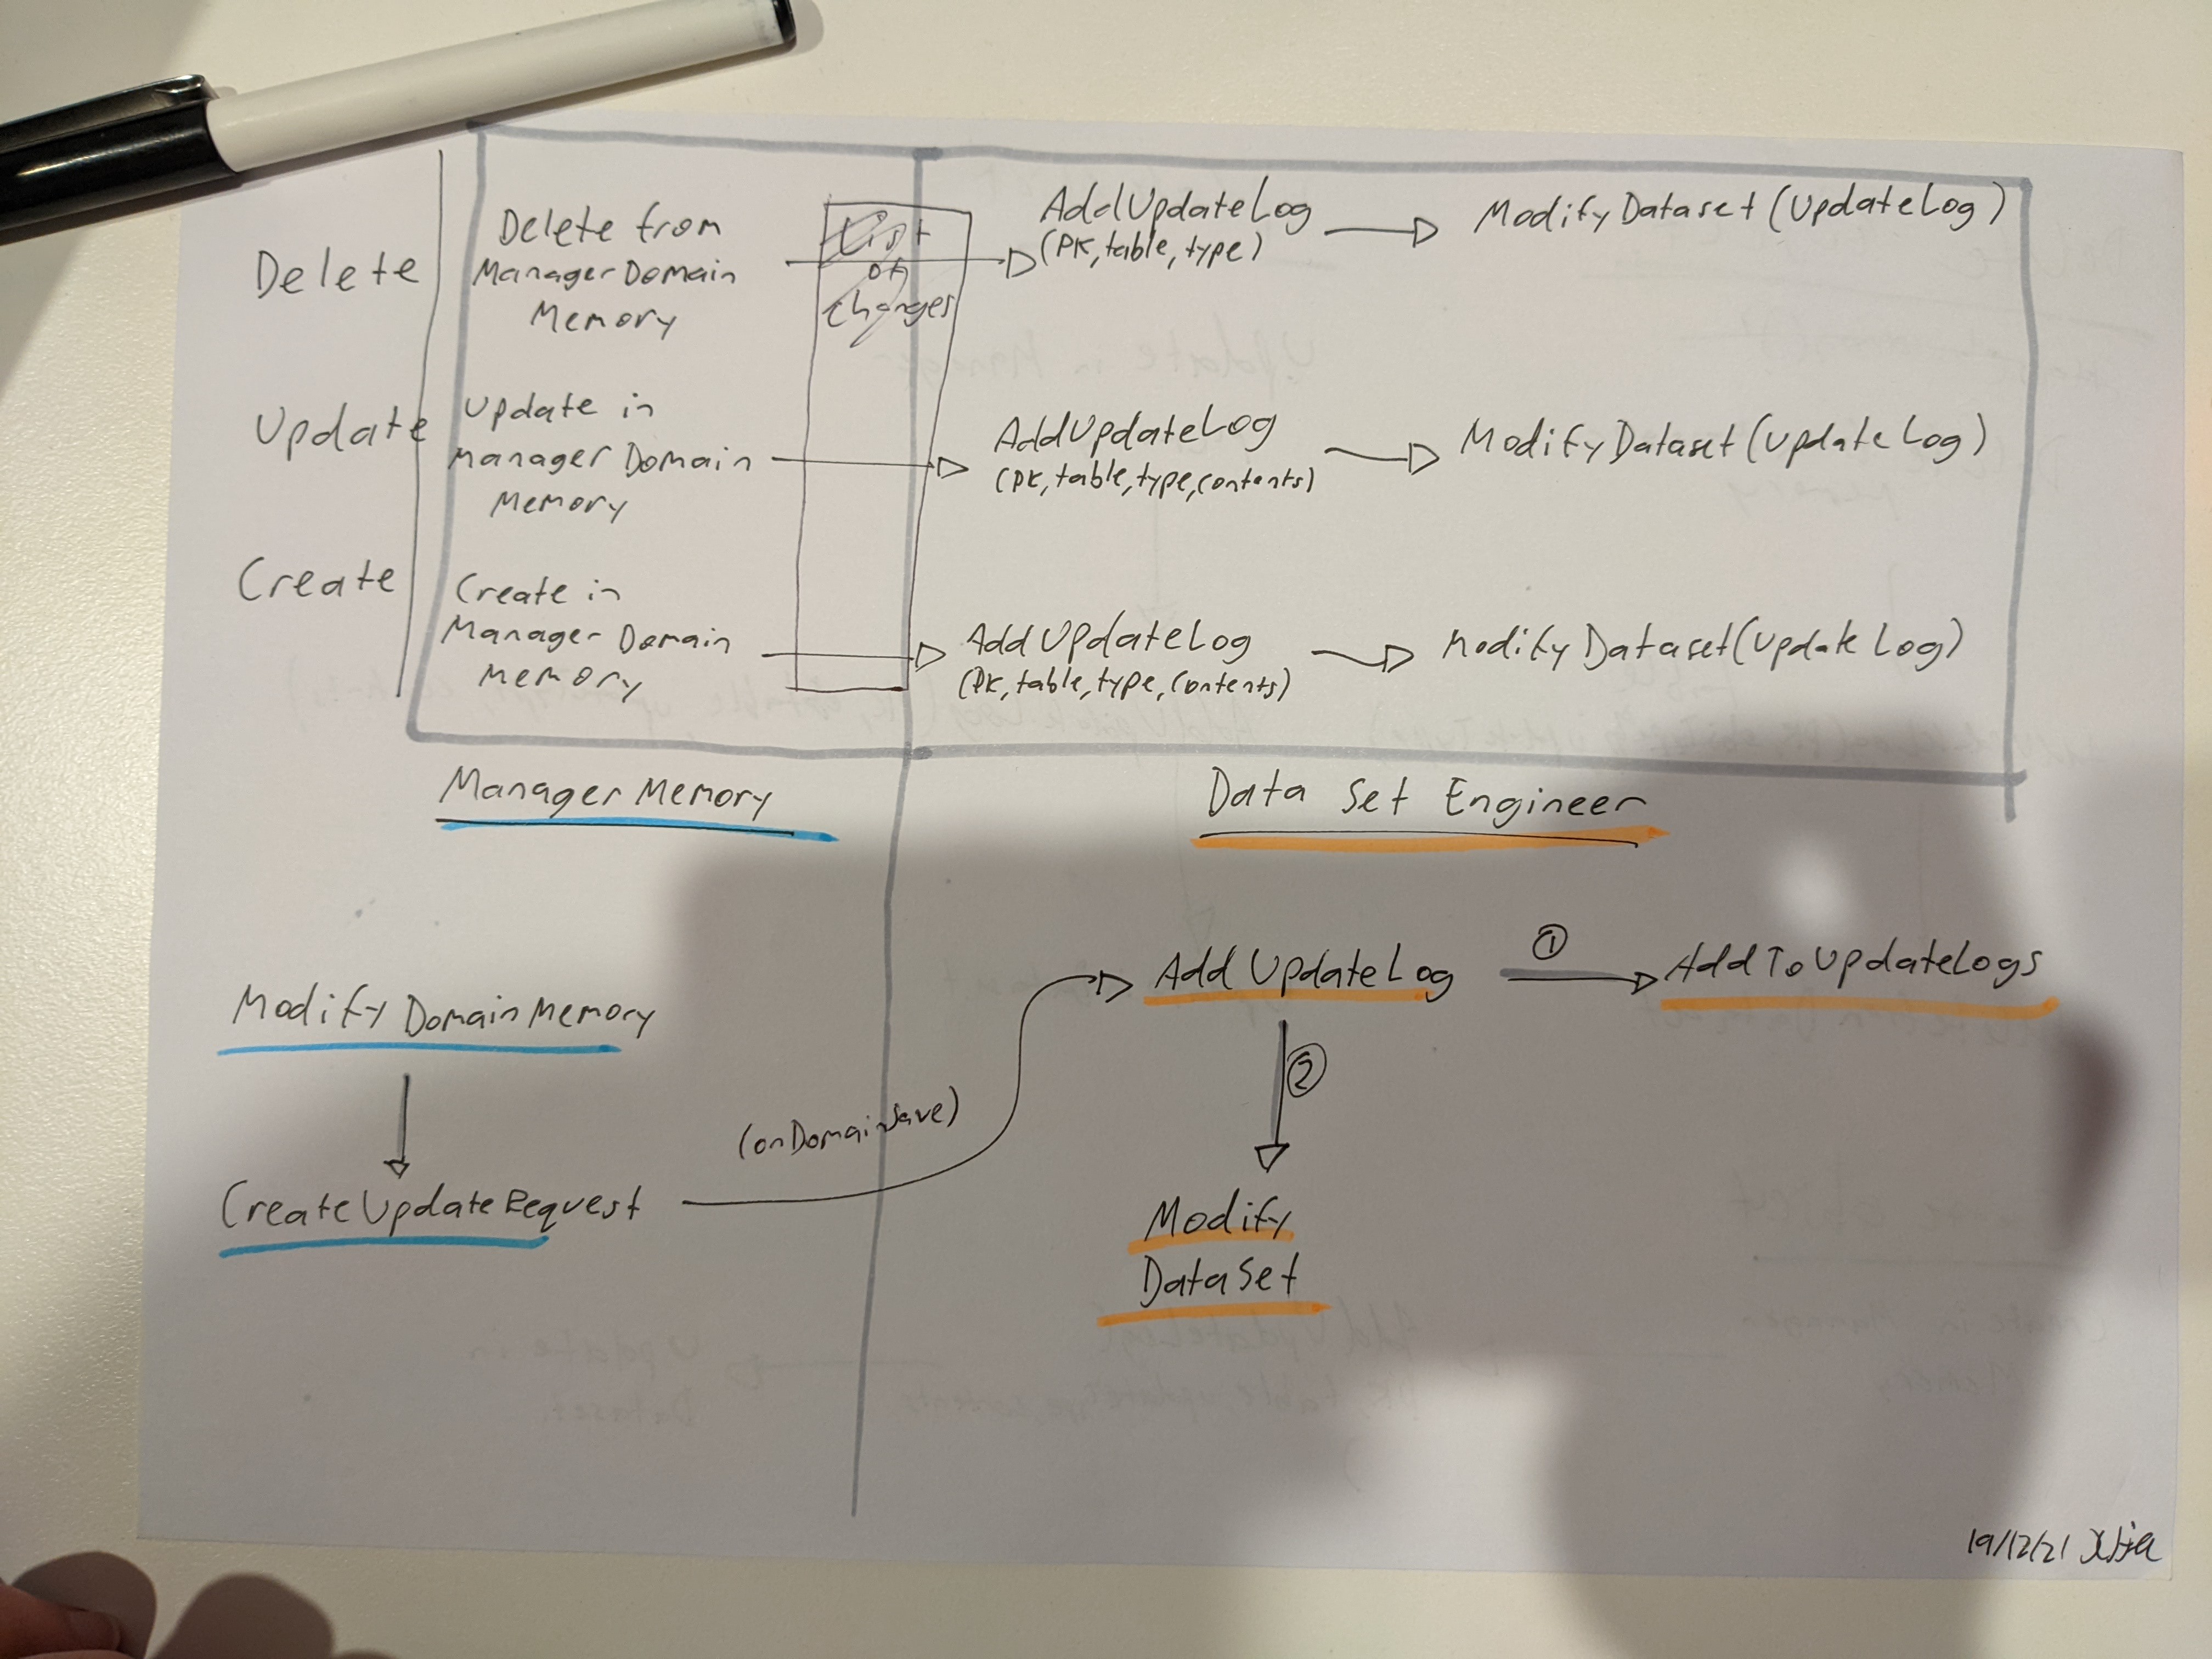 Delete
Delete from
Manager Domain
Memory
List
of
changes
AddUpdateLog
(PK, table, type)
Modify Dataset (UpdateLog)
Update
Update in
Manager Domain
Memory
AddUpdateLog
(PK, table, type, contents)
Modify Dataset (Update Log)
Create
Create in
Manager Domain
Memory
Add UpdateLog
(PK, table, type, contents)
Modify Dataset (Update Log)
Manager Memory
Data Set Engineer
Modify Domain Memory
CreateUpdateRequest
(onDomainSave)
Add UpdateLog
①
AddToUpdateLogs
②
Modify
DataSet
19/12/21